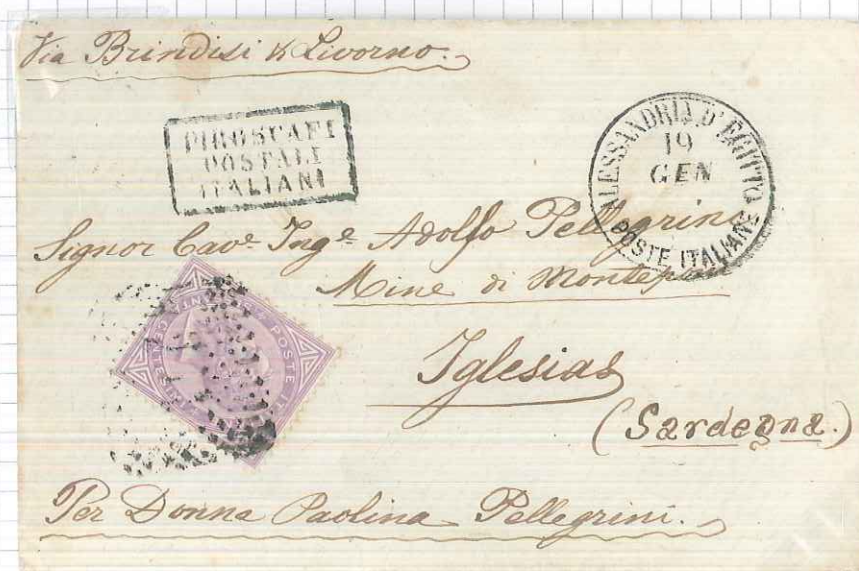 Via Brindisi & Livorno.
PIROSCAFI
POSTALI
ITALIANI
ALESSANDRIA D'EGITTO
19
GEN
POSTE ITALIANE
Signor Cavᵉ Ingᵉ Adolfo Pellegrini
Mine di Monteponi
Iglesias
(Sardegna.)
Per Donna Paolina Pellegrini.